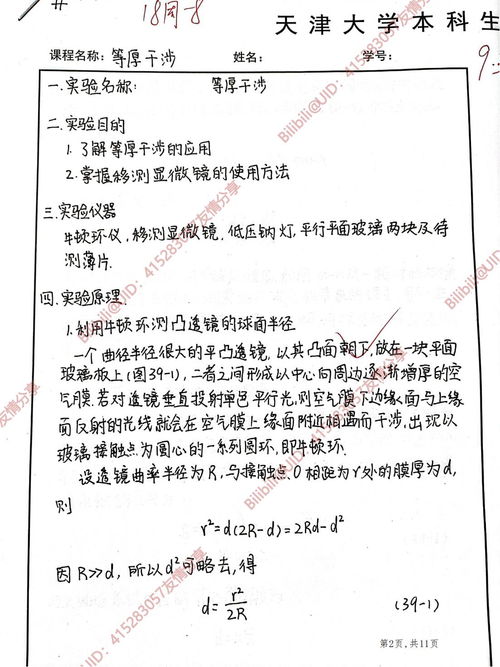 18周-8
天津大学本科生
课程名称: 等厚干涉 姓名: 学号:
9
一.实验名称: 等厚干涉
二.实验目的
1.了解等厚干涉的应用
2.掌握移测显微镜的使用方法
三.实验仪器
牛顿环仪,移测显微镜,低压钠灯,平行平面玻璃两块及待
测薄片.
四.实验原理
1.利用牛顿环测凸透镜的球面半径
一个曲径半径很大的平凸透镜,以其凸面朝下,放在一块平面
玻璃板上(图39-1),二者之间形成以中心向周边逐渐增厚的空
气膜.若对透镜垂直投射单色平行光,则空气膜下边缘面与上缘
面反射的光线就会在空气膜上缘面附近相遇而干涉,出现以
玻璃接触点为圆心的一系列圆环,即牛顿环.
设透镜曲率半径为R,与接触点O相距为r处的膜厚为d,
则
r²=d(2R-d)=2Rd-d²
因R≫d,所以d²可略去,得
d= r²/2R (39-1)
第2页,共11页
Bilibili@UID: 415283057友情分享